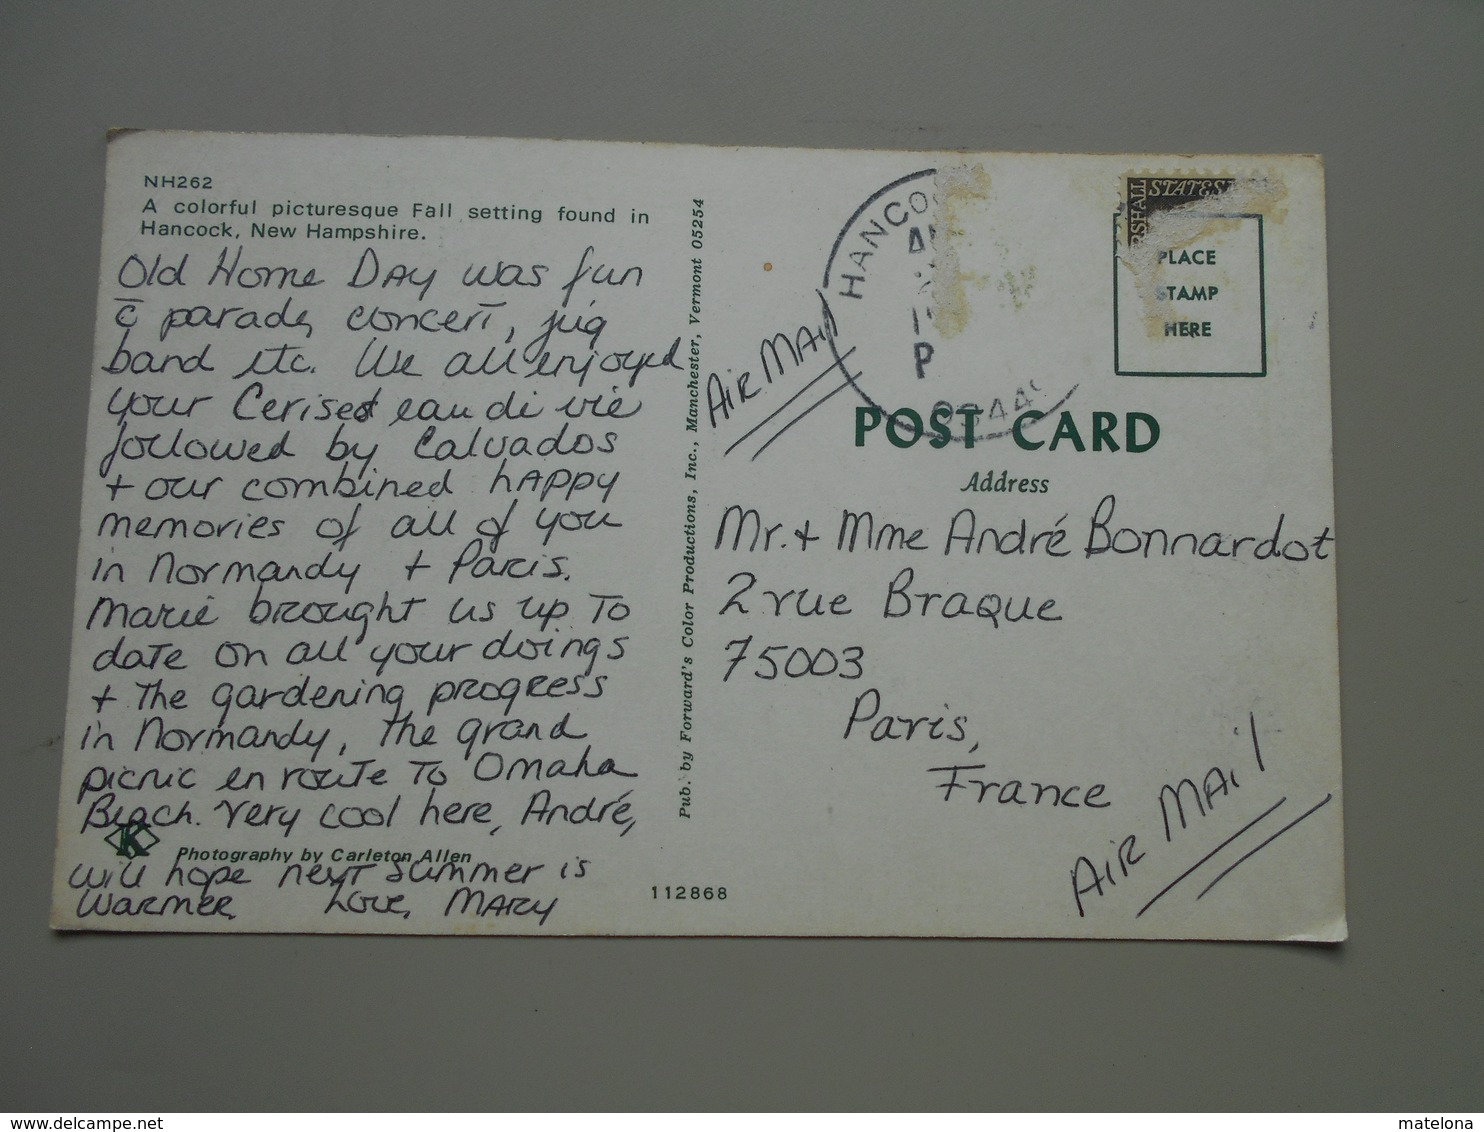 NH262
A colorful picturesque Fall setting found in
Hancock, New Hampshire.
Old Home Day was fun
c̄ parade, concert, jug
band etc. We all enjoyed
your Cerises eau di vie
followed by Calvados
+ our combined happy
memories of all of you
in Normandy + Paris.
Marie brought us up to
date on all your doings
+ the gardening progress
in Normandy, the grand
picnic en route to Omaha
Beach. Very cool here, André,
Photography by Carleton Allen
will hope next summer is
warmer. Love, Mary
112868
Pub. by Forward's Color Productions, Inc., Manchester, Vermont 05254
HANCOC
P
0344
RSHALL
STATES
PLACE
STAMP
HERE
Air Mail
POST CARD
Address
Mr. + Mme André Bonnardot
2 rue Braque
75003
Paris,
France
Air Mail
matelona